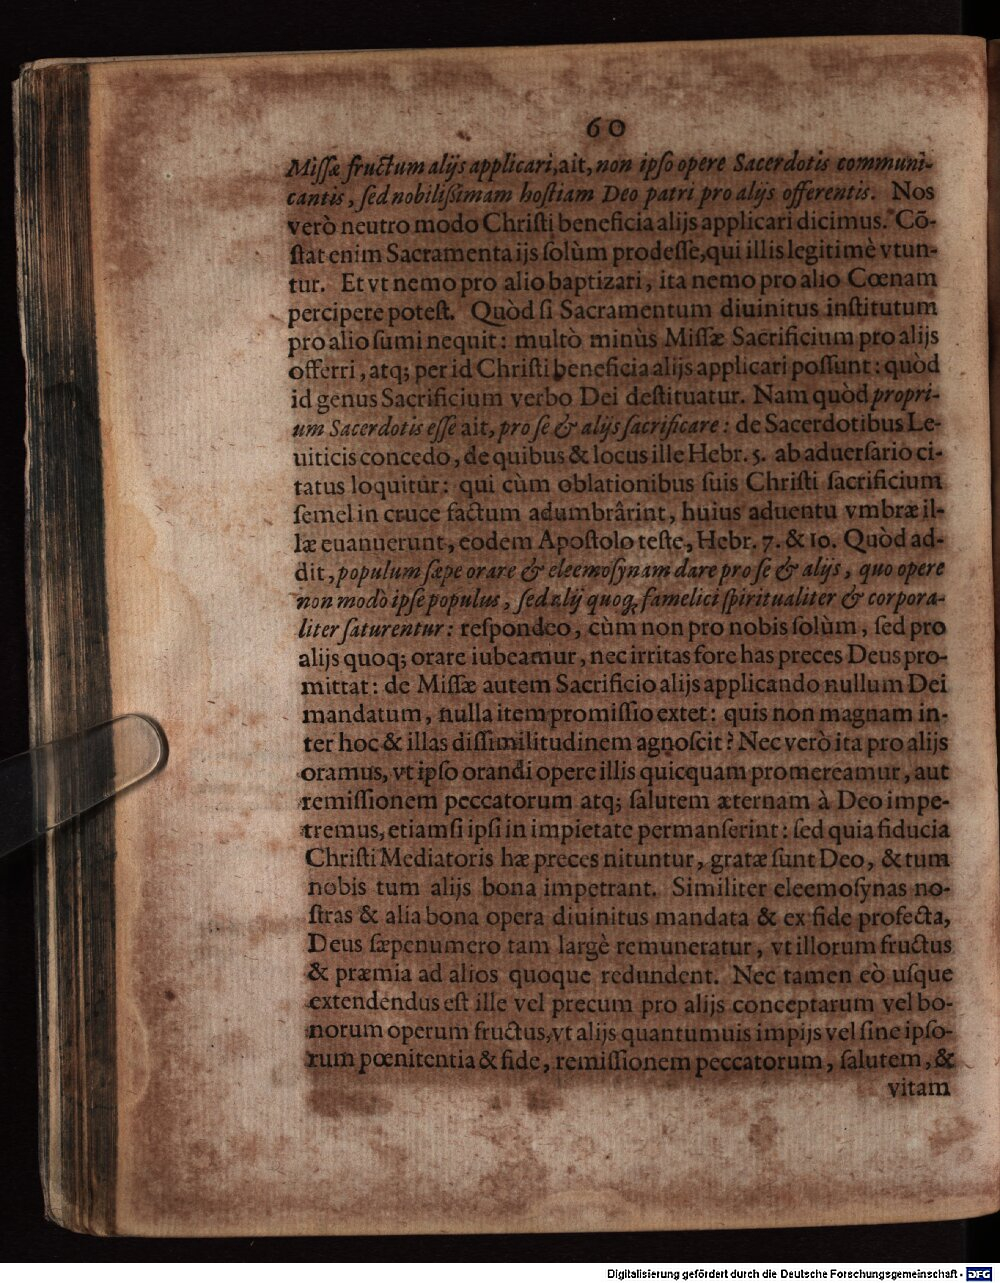 60
Missæ fructum alijs applicari, ait, non ipso opere Sacerdotis communi-
cantis, sed nobilissimam hostiam Deo patri pro alijs offerentis. Nos
verò neutro modo Christi beneficia alijs applicari dicimus. Cõ-
stat enim Sacramenta ijs solùm prodesse, qui illis legitimè vtun-
tur. Et vt nemo pro alio baptizari, ita nemo pro alio Cœnam
percipere potest. Quòd si Sacramentum diuinitus institutum
pro alio sumi nequit: multò minùs Missæ Sacrificium pro alijs
offerri, atq; per id Christi beneficia alijs applicari possunt: quòd
id genus Sacrificium verbo Dei destituatur. Nam quòd propri-
um Sacerdotis esse ait, pro se & alijs sacrificare: de Sacerdotibus Le-
uiticis concedo, de quibus & locus ille Hebr. 5. ab aduersario ci-
tatus loquitur: qui cùm oblationibus suis Christi sacrificium
semel in cruce factum adumbrârint, huius aduentu vmbræ il-
læ euanuerunt, eodem Apostolo teste, Hebr. 7. & 10. Quòd ad-
dit, populum sæpe orare & eleemosynam dare pro se & alijs, quo opere
non modò ipse populus, sed alij quoq; famelici spiritualiter & corpora-
liter saturentur: respondeo, cùm non pro nobis solùm, sed pro
alijs quoq; orare iubeamur, nec irritas fore has preces Deus pro-
mittat: de Missæ autem Sacrificio alijs applicando nullum Dei
mandatum, nulla item promissio extet: quis non magnam in-
ter hoc & illas dissimilitudinem agnoscit? Nec verò ita pro alijs
oramus, vt ipso orandi opere illis quicquam promereamur, aut
remissionem peccatorum atq; salutem æternam à Deo impe-
tremus, etiamsi ipsi in impietate permanserint: sed quia fiducia
Christi Mediatoris hæ preces nituntur, gratæ sunt Deo, & tum
nobis tum alijs bona impetrant. Similiter eleemosynas no-
stras & alia bona opera diuinitus mandata & ex fide profecta,
Deus sæpenumero tam largè remuneratur, vt illorum fructus
& præmia ad alios quoque redundent. Nec tamen eò usque
extendendus est ille vel precum pro alijs conceptarum vel bo-
norum operum fructus, vt alijs quantumuis impijs vel sine ipso-
rum pœnitentia & fide, remissionem peccatorum, salutem, &
vitam
Digitalisierung gefördert durch die Deutsche Forschungsgemeinschaft - DFG